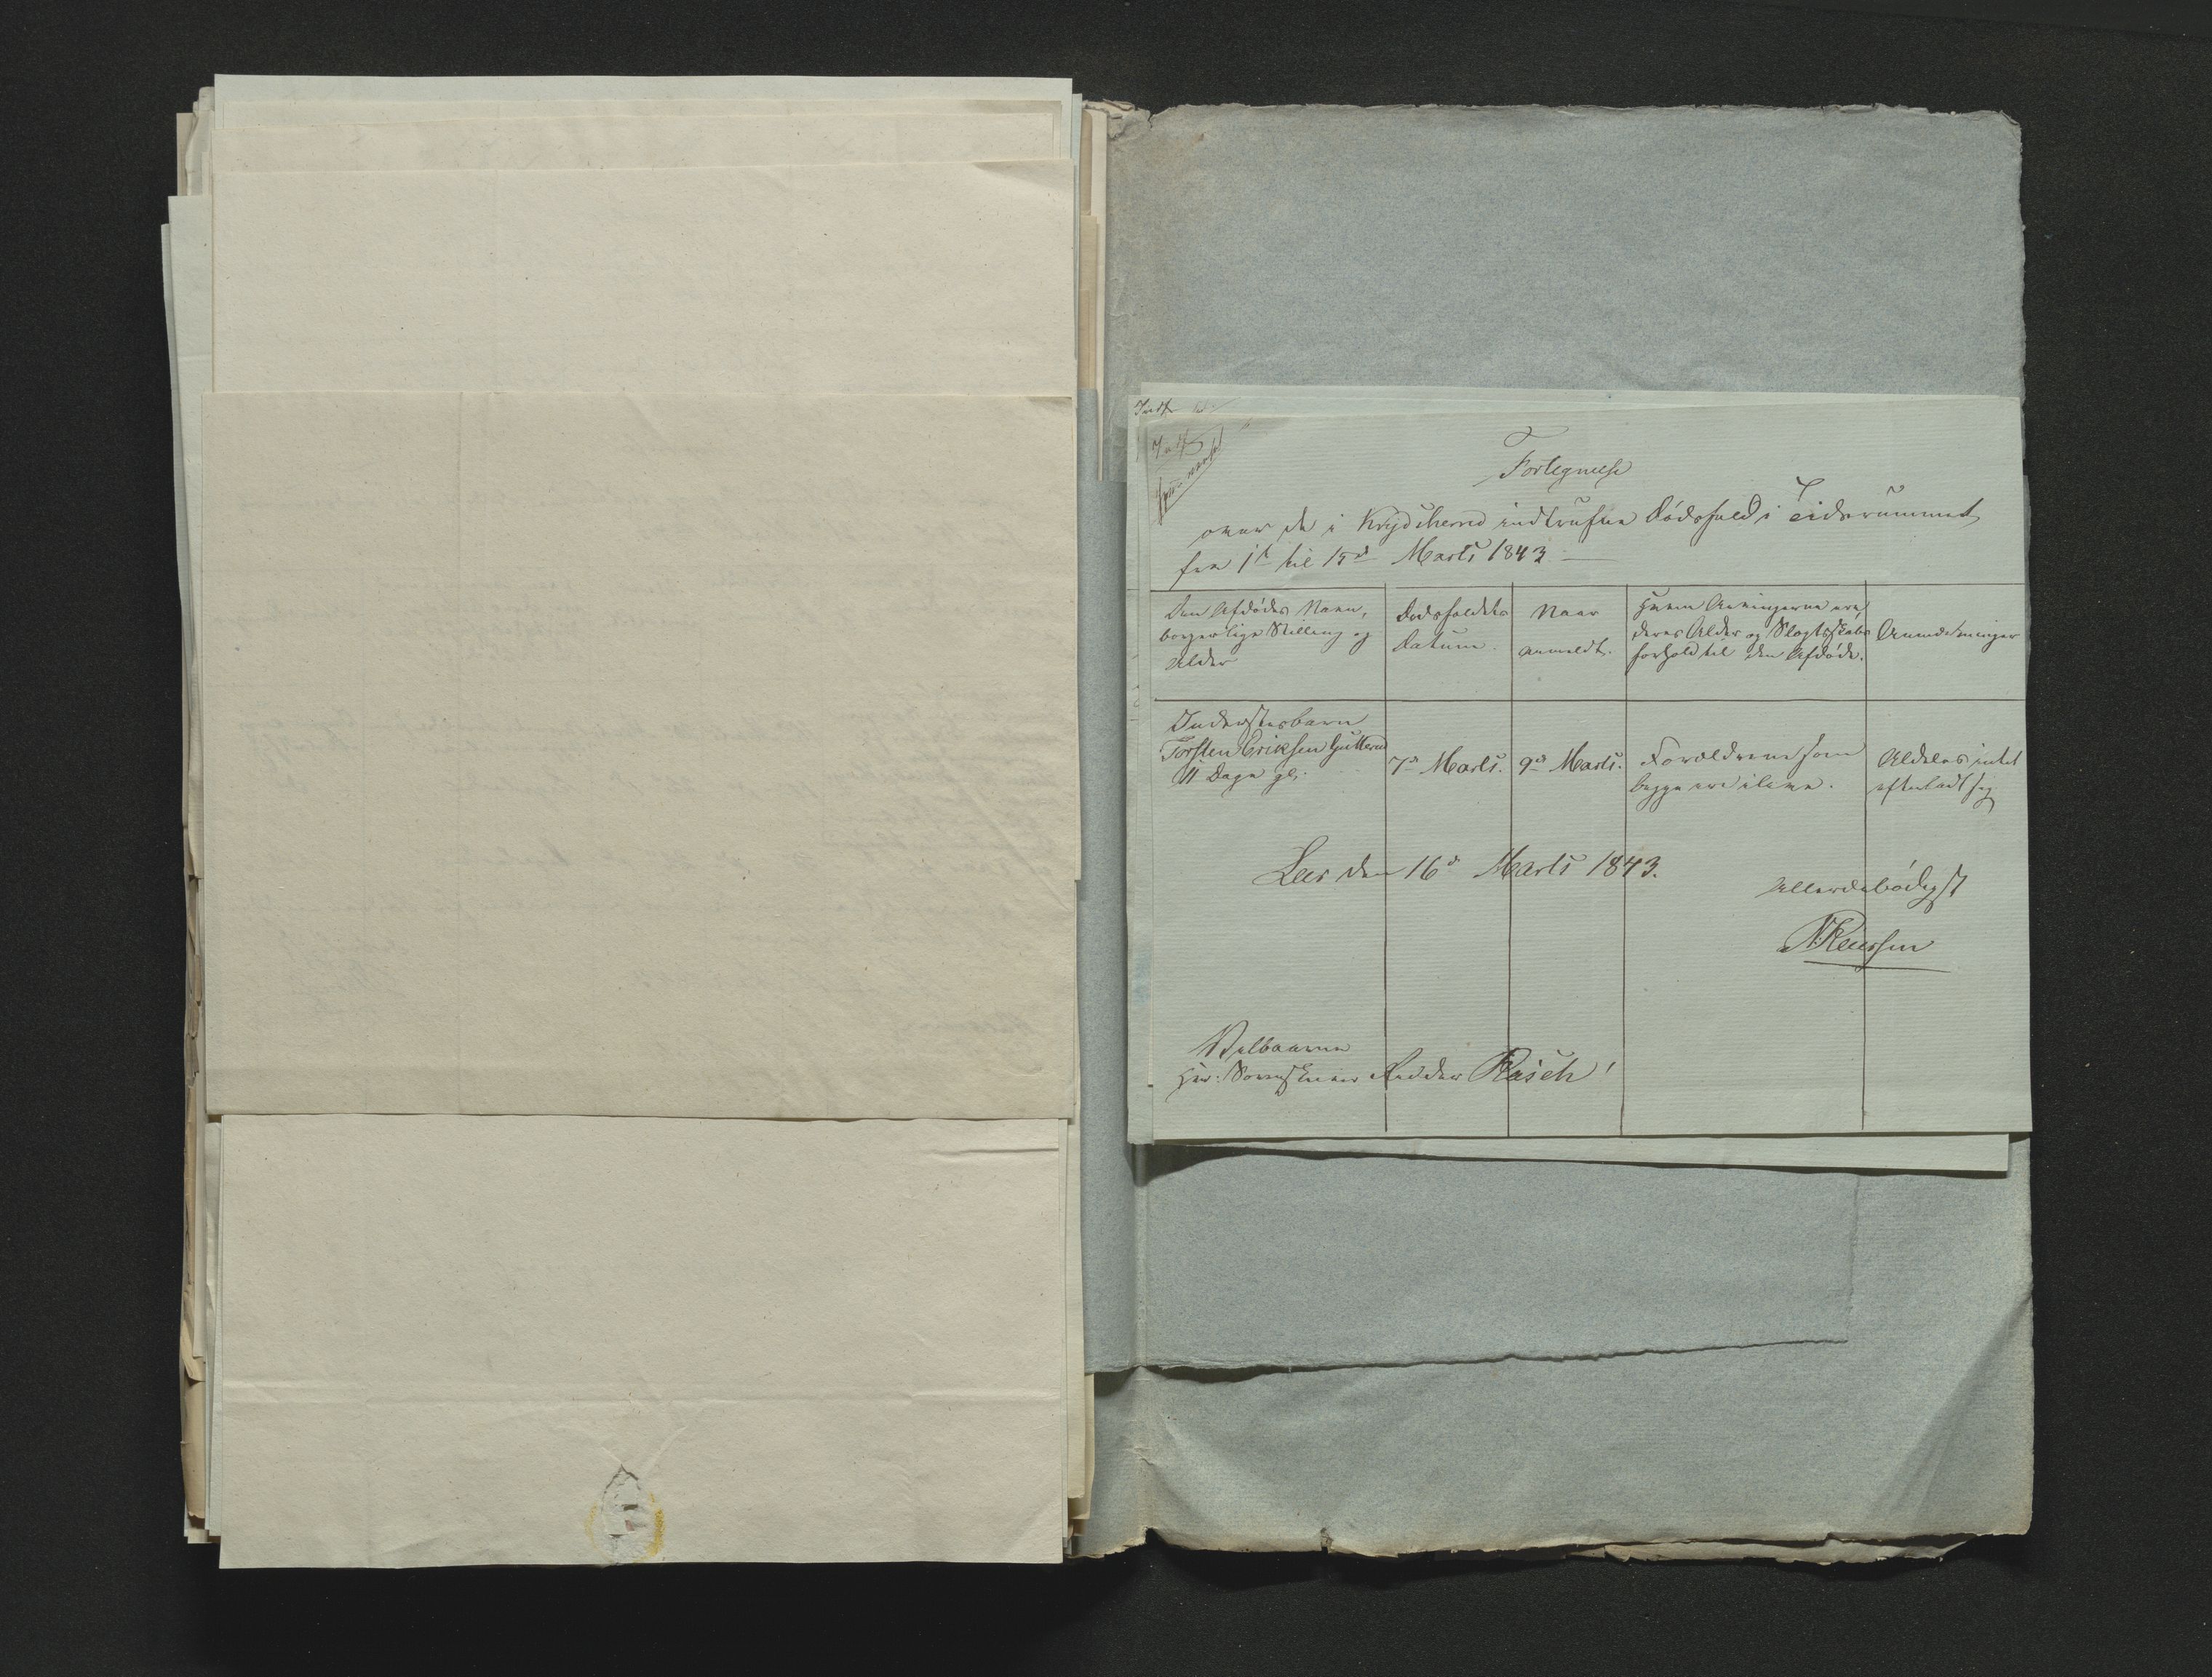 Indf
Indf
Fortegnelse
over de i Krydsherred indtrufne Dødsfald i Tidsrummet
fra 1ste til 15de Marts 1843
Den Afdødes Navn,
borgerlige Stilling og
Alder
Dødsfaldets
Datum.
Naar
anmeldt.
Hvem Arvingerne ere,
deres Alder og Slægtskabs
forhold til den Afdøde.
Anmærkninger
Inderstesbarn
Torsten Eriksen
11 Dage gl.
7de Marts.
9de Marts.
Forældrene som
begge ere ilive.
Aldeles intet
efterladt sig
Lees den 16de Marts 1843.
Allerærbødigst
Velbaarne
Herr Sorenskriver Ridder Rasch!